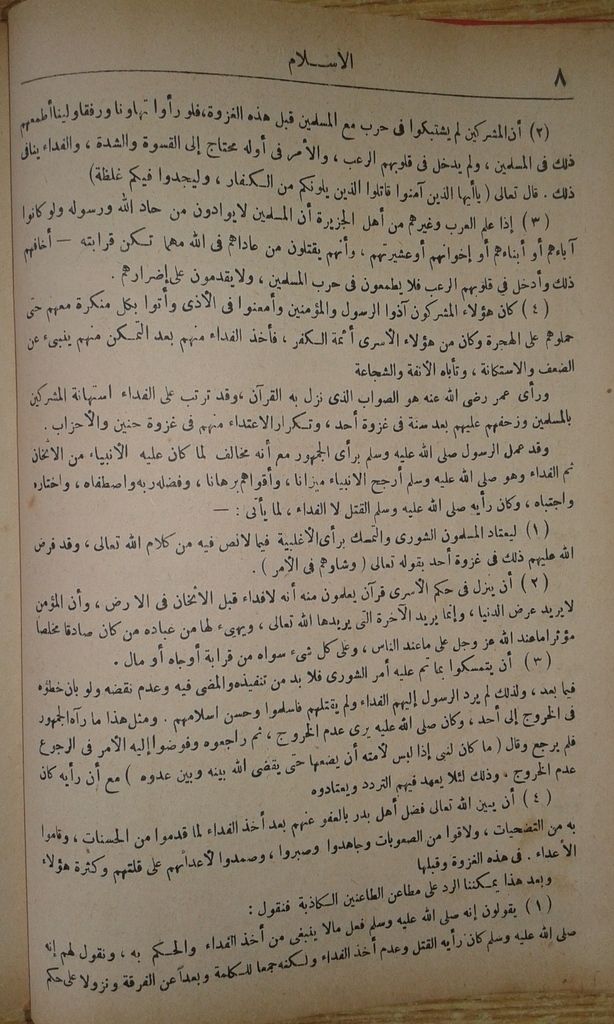 ٨
الاسلام
(٢) أن المشركين لم يشتبكوا فى حرب مع المسلمين قبل هذه الغزوة، فلو رأوا تهاونا ورفقا ولينا أطمعهم
ذلك فى المسلمين ، ولم يدخل فى قلوبهم الرعب ، والأمر فى أوله محتاج إلى القسوة والشدة ، والفداء ينافى
ذلك . قال تعالى (ياأيها الذين آمنوا قاتلوا الذين يلونكم من الكفار ، وليجدوا فيكم غلظة)
(٣) إذا علم العرب وغيرهم من أهل الجزيرة أن المسلمين لايوادون من حاد الله ورسوله ولو كانوا
آباءهم أو أبناءهم أو إخوانهم أو عشيرتهم ، وأنهم يقتلون من عاداهم فى الله مهما تكن قرابته — أخافهم
ذلك وأدخل في قلوبهم الرعب فلا يطمعون فى حرب المسلمين ، ولا يقدمون على إضرارهم .
(٤) كان هؤلاء المشركون آذوا الرسول والمؤمنين وأمعنوا فى الأذى وأتوا بكل منكرة معهم حتى
حملوهم على الهجرة وكان من هؤلاء الأسرى أئمة الكفر ، فأخذ الفداء منهم بعد التمكن منهم ينبىء عن
الضعف والاستكانة ، وتأباه الأنفة والشجاعة
ورأى عمر رضى الله عنه هو الصواب الذى نزل به القرآن ،وقد ترتب على الفداء استهانة المشركين
بالمسلمين وزحفهم عليهم بعد سنة فى غزوة أحد ، وتكرار الاعتداء منهم فى غزوة حنين والأحزاب .
وقد عمل الرسول صلى الله عليه وسلم برأى الجمهور مع أنه مخالف لما كان عليه الأنبياء من الاثخان
ثم الفداء وهو صلى الله عليه وسلم أرجح الانبياء ميزانا ، وأقواهم برهانا ، وفضله ربه واصطفاه ، واختاره
واجتباه ، وكان رأيه صلى الله عليه وسلم القتل لا الفداء ، لما يأتى : —
(١) ليعتاد المسلمون الشورى والتمسك برأى الأغلبية فيما لانص فيه من كلام الله تعالى ، وقد فرض
الله عليهم ذلك فى غزوة أحد بقوله تعالى ( وشاورهم فى الأمر ) .
(٢) أن ينزل فى حكم الأسرى قرآن يعلمون منه أنه لافداء قبل الاثخان فى الارض ، وأن المؤمن
لايريد عرض الدنيا ، وإنما يريد الآخرة التى يريدها الله تعالى ، ويهىء لها من عباده من كان صادقا مخلصا
مؤثرا ماعند الله عز وجل على ماعند الناس ، وعلى كل شىء سواه من قرابة أوجاه أو مال .
(٣) أن يتمسكوا بما تم عليه أمر الشورى فلا بد من تنفيذه والمضى فيه وعدم نقضه ولو بان خطؤه
فيما بعد ، ولذلك لم يرد الرسول إليهم الفداء ولم يقتلهم فاسلموا وحسن اسلامهم . ومثل هذا ما رآه الجمهور
فى الخروج إلى أحد ، وكان صلى الله عليه يرى عدم الخروج ، ثم راجعوه وفوضوا إليه الأمر فى الرجوع
فلم يرجع وقال ( ما كان لنبى إذا لبس لأمته أن يضعها حتى يقضى الله بينه وبين عدوه ) مع أن رأيه كان
عدم الخروج ، وذلك لئلا يعهد فيهم التردد ويعتادوه
(٤) أن يبين الله تعالى فضل أهل بدر بالعفو عنهم بعد أخذ الفداء لما قدموا من الحسنات ، وقاموا
به من التضحيات ، ولاقوا من الصعوبات وجاهدوا وصبروا ، وصمدوا لأعدائهم على قلتهم وكثرة هؤلاء
الأعداء . فى هذه الغزوة وقبلها
وبعد هذا يمكننا الرد على مطاعن الطاعنين الكاذبة فنقول :
(١) يقولون إنه صلى الله عليه وسلم فعل مالا ينبغى من أخذ الفداء والحكم به ، ونقول لهم إنه
صلى الله عليه وسلم كان رأيه القتل وعدم أخذ الفداء ولكنه جمعا للكلمة وبعدآ عن الفرقة ونزولا على حكم